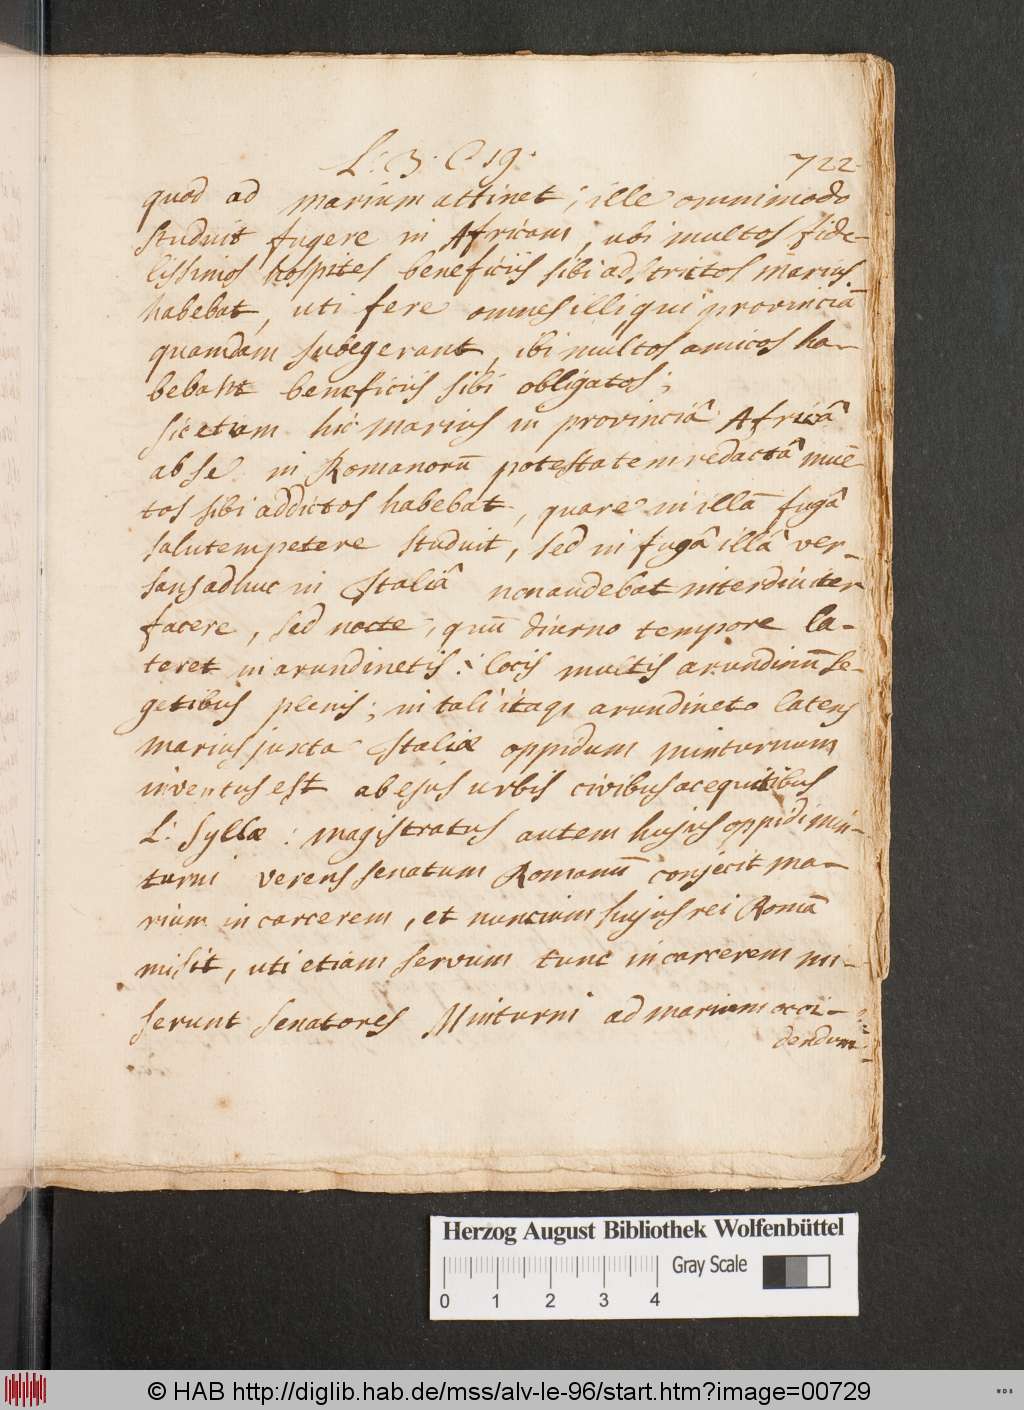 L: 3. C 19. 722
quod ad marium attinet; ille omnimodo
studuit fugere in Africam, ubi multos fide-
lissimos hospites beneficiis sibi adstrictos marius
habebat, uti fere omnes illi qui provinciā
quamdam subegerant, ibi multos amicos ha-
bebant beneficiis sibi obligatos;
sic etiam hic marius in provinciâ Africâ
ab se in Romanorū potestatem redactâ mul-
tos sibi addictos habebat, quare in illā fugâ
salutem petere studuit, sed in fugâ illâ ver-
sans adhuc in Italiâ non audebat interdiu iter
facere, sed nocte, quū diurno tempore la-
teret in arundinetis: locis multis arundinū se-
getibus plenis; in tali itaqȝ arundineto latens
marius juxta Italiæ oppidum minturnum
inventus est ab ejus urbis civibus ac equitibus
L: Syllæ: magistratus autem hujus oppidi min-
turni verens senatum Romanū conjecit ma-
rium in carcerem, et nuncium hujus rei Romā
misit, uti etiam servum tunc in carcerem mi-
serunt senatores Minturni ad marium occi-
dendum
Herzog August Bibliothek Wolfenbüttel
Gray Scale
0 1 2 3 4
© HAB http://diglib.hab.de/mss/alv-le-96/start.htm?image=00729